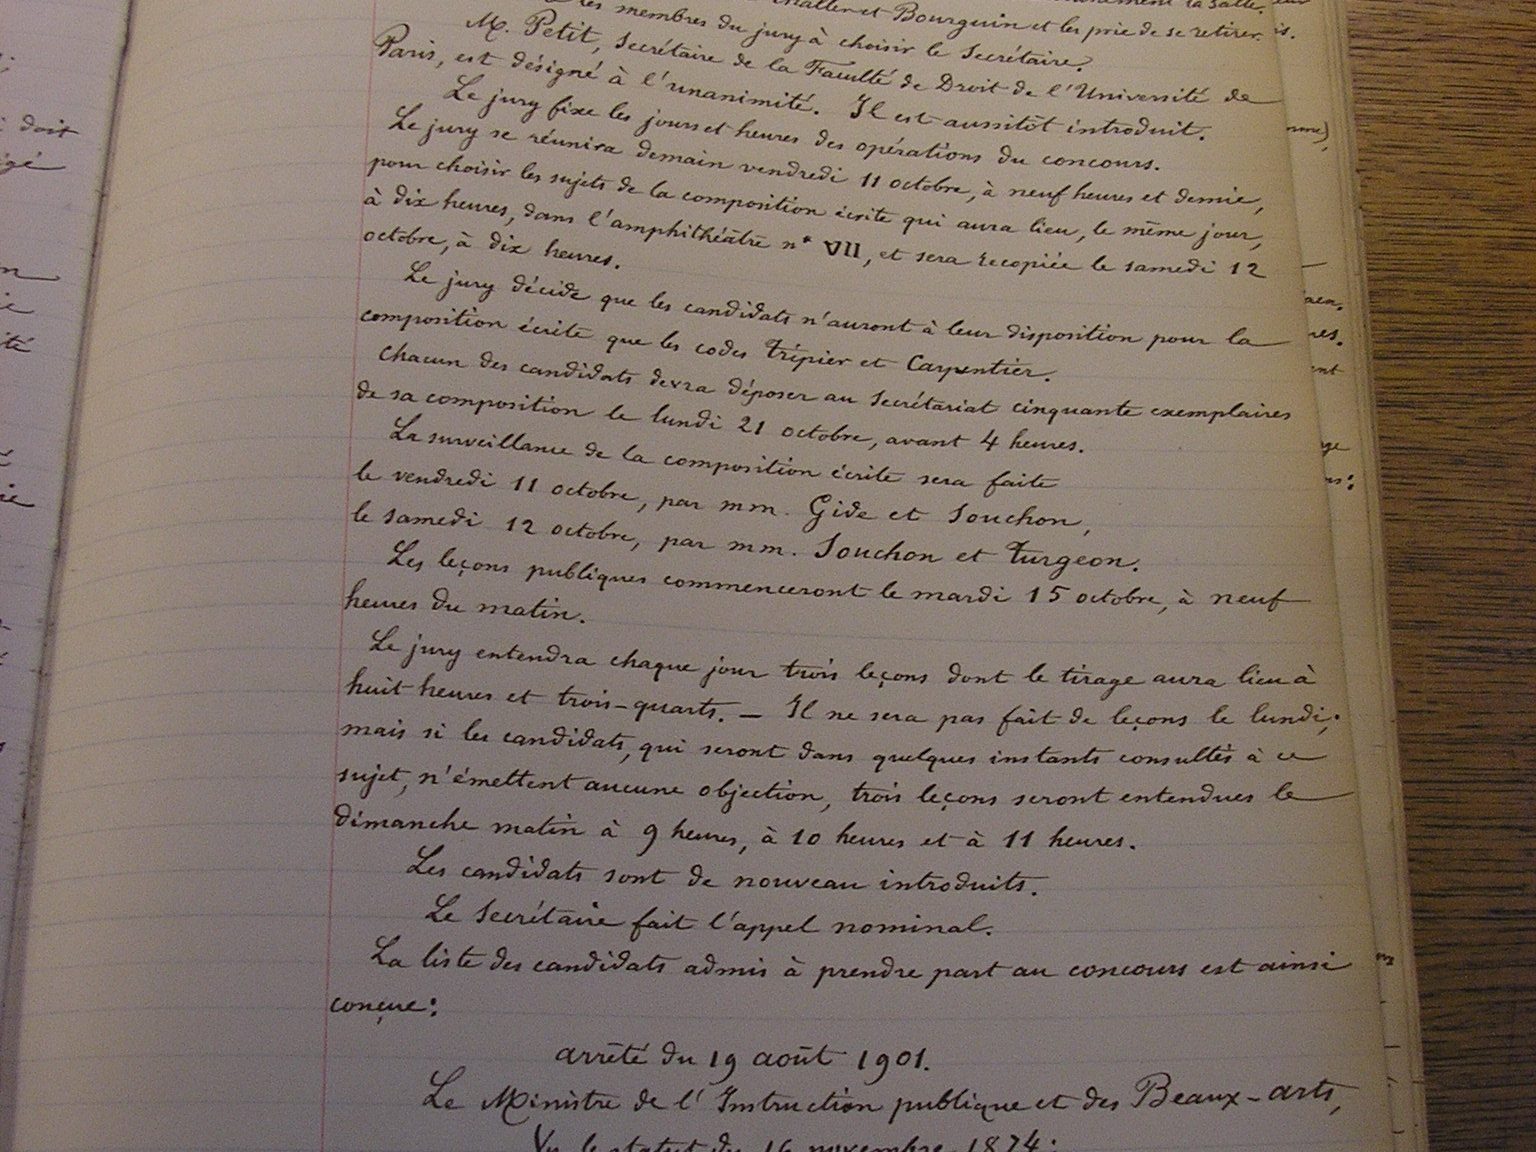 les membres du jury à choisir le Secrétaire.
et Bourguin et les prie de se retirer.
M. Petit, Secrétaire de la Faculté de Droit de l'Université de
Paris, est désigné à l'unanimité. Il est aussitôt introduit.
Le jury fixe les jours et heures des opérations du concours.
Le jury se réunira demain vendredi 11 octobre, à neuf heures et demie,
pour choisir les sujets de la composition écrite qui aura lieu, le même jour,
à dix heures, dans l'amphithéâtre n° VII, et sera recopiée le samedi 12
octobre, à dix heures.
Le jury décide que les candidats n'auront à leur disposition pour la
composition écrite que les codes Tripier et Carpentier.
Chacun des candidats devra déposer au Secrétariat cinquante exemplaires
de sa composition le lundi 21 octobre, avant 4 heures.
La surveillance de la composition écrite sera faite
le vendredi 11 octobre, par mm. Gide et Souchon,
le samedi 12 octobre, par mm. Souchon et Turgeon.
Les leçons publiques commenceront le mardi 15 octobre, à neuf
heures du matin.
Le jury entendra chaque jour trois leçons dont le tirage aura lieu à
huit heures et trois-quarts. — Il ne sera pas fait de leçons le lundi;
mais si les candidats, qui seront dans quelques instants consultés à ce
sujet, n'émettent aucune objection, trois leçons seront entendues le
dimanche matin à 9 heures, à 10 heures et à 11 heures.
Les candidats sont de nouveau introduits.
Le Secrétaire fait l'appel nominal.
La liste des candidats admis à prendre part au concours est ainsi
conçue:
arrêté du 19 août 1901.
Le Ministre de l'Instruction publique et des Beaux-arts,
Vu le statut du 16 novembre 1874;